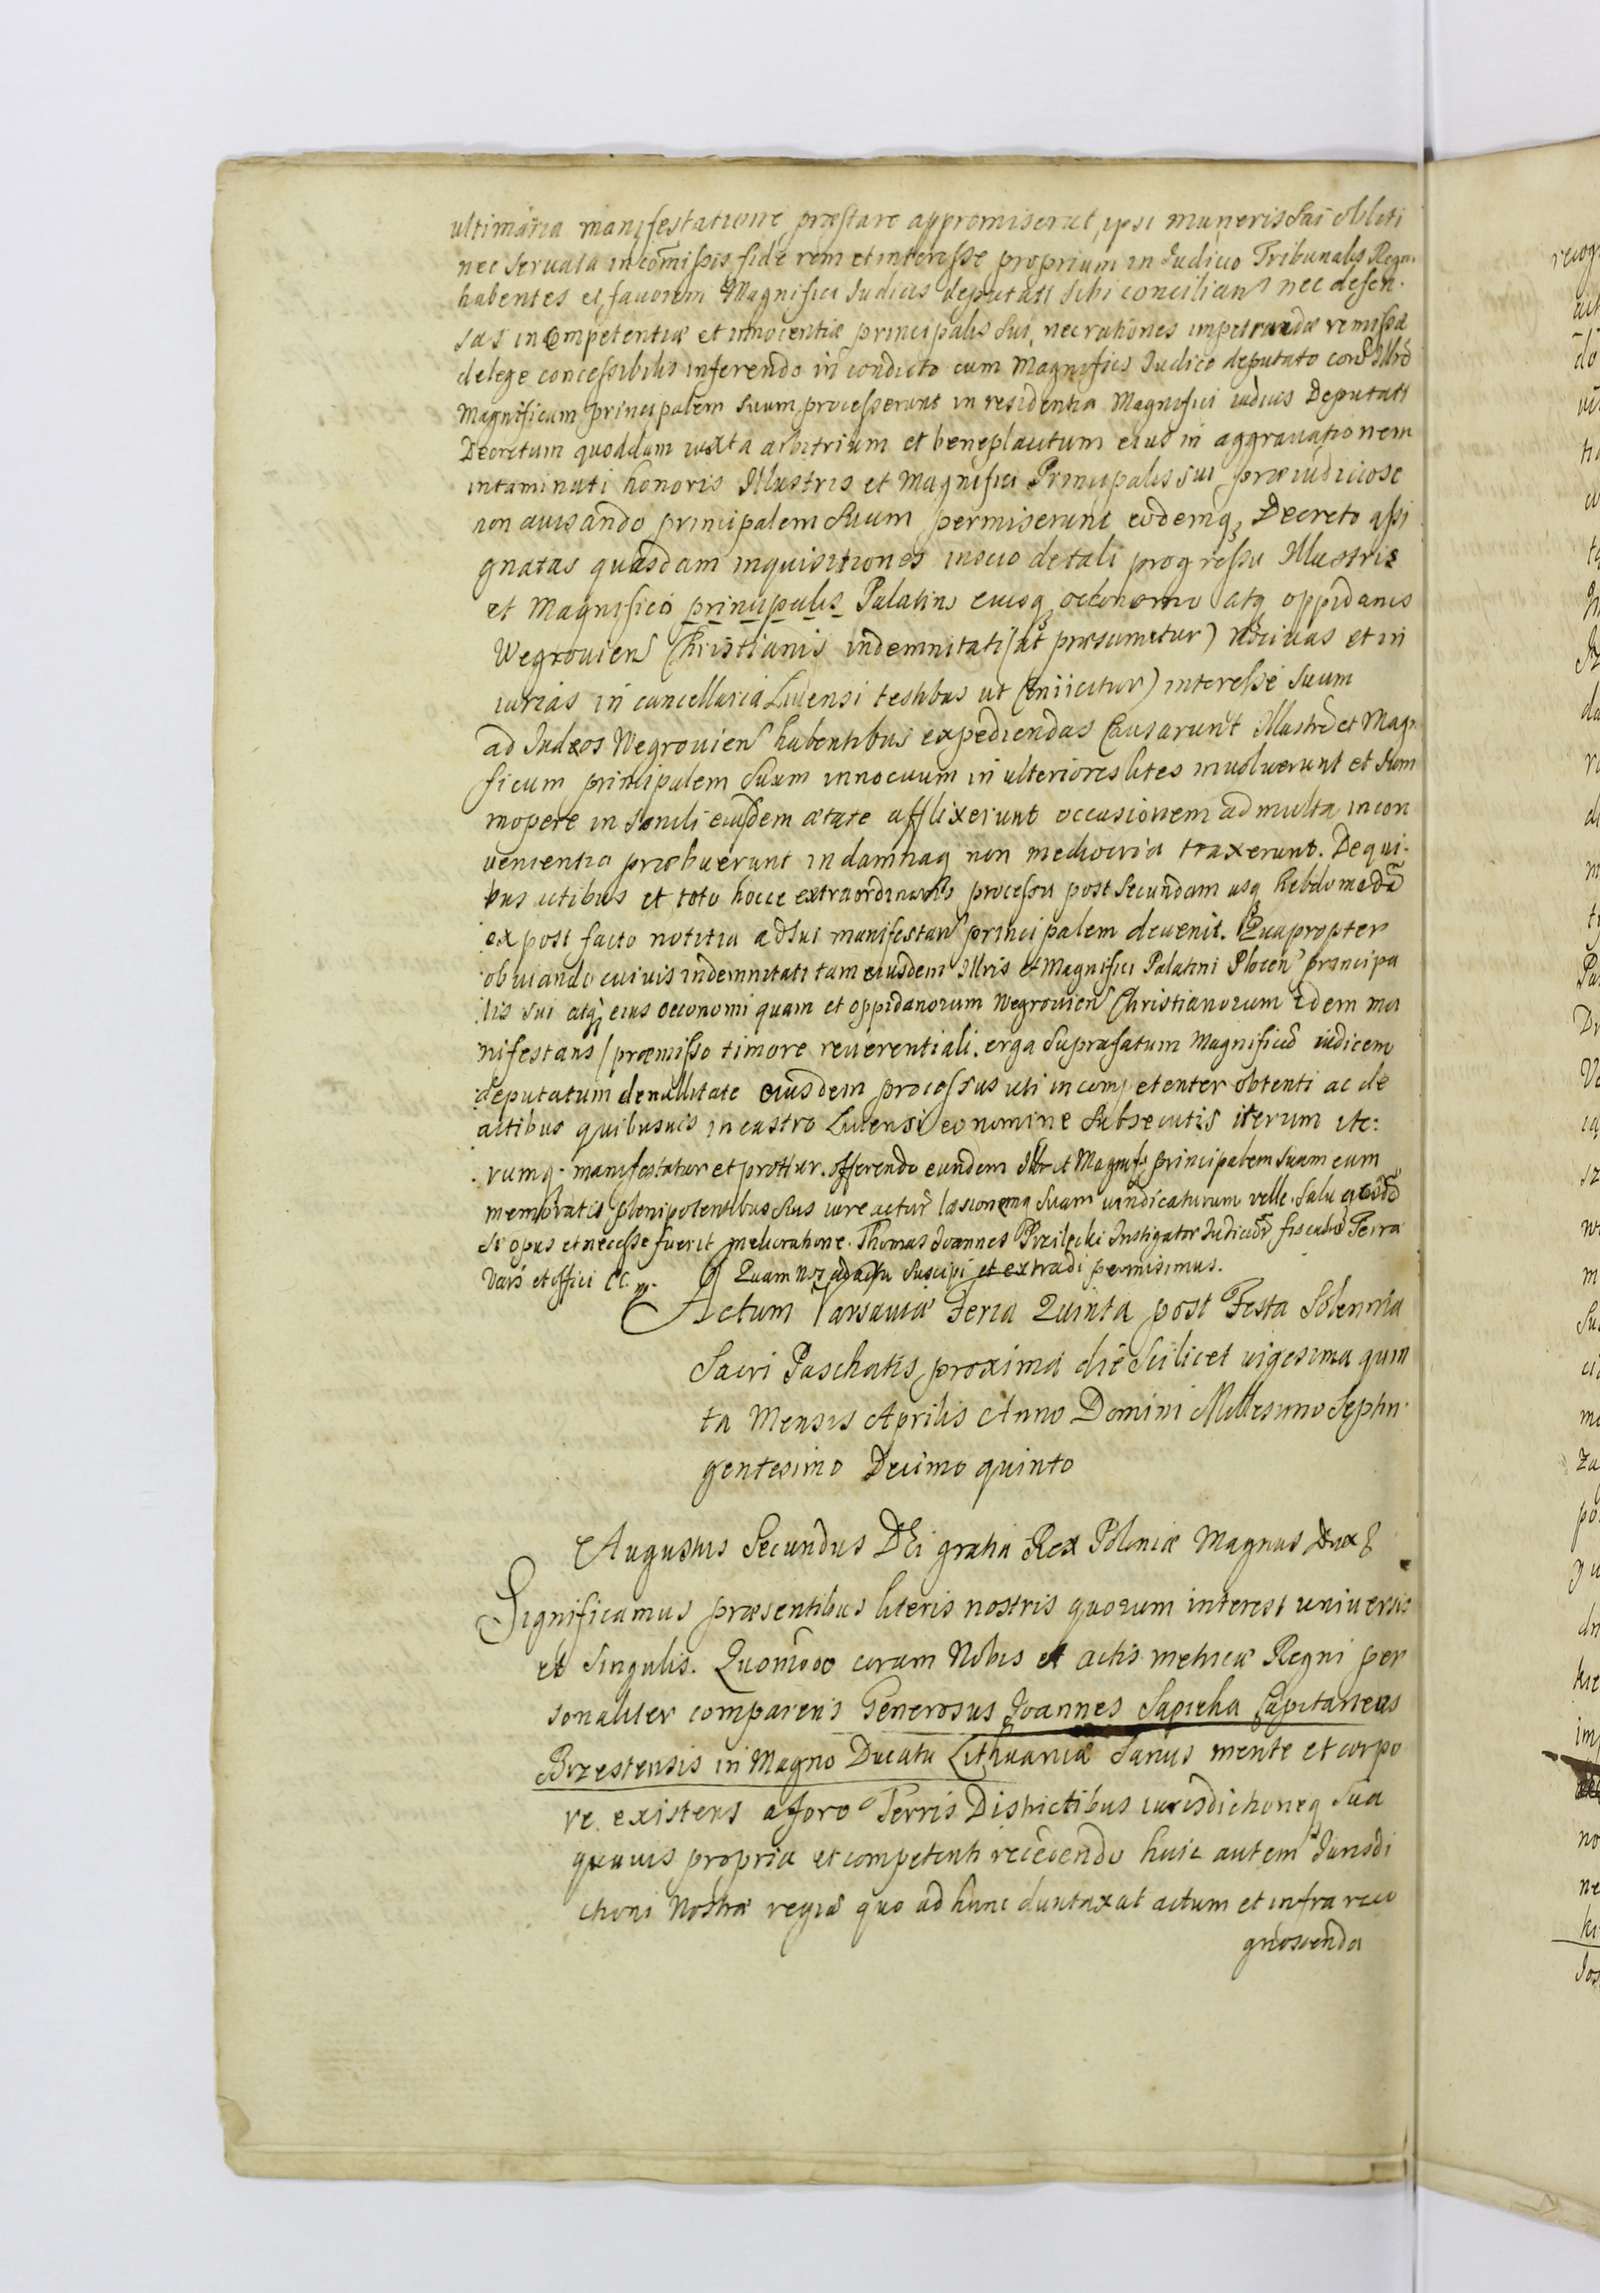 ultimaria manifestatione præstare appromiserut, ipsi muneris Sai obliti
nec seruata in comissis fide rem et interesse proprium in Iudicio Tribunalis Regni
habentes et fauorem Magnifici Iudicis deputati sibi concilians nec defen-
sas incompetentiæ et innocentiæ principalis sui, nec rationes impetrandæ remissæ
de lege concessibilis inferendo in condicto cum Magnifico Iudice deputato
Magnificum principalem suum processerunt in residentia Magnifici iudicis Deputati
Decretum quoddam iuxta arbitrium et beneplacitum eius in aggrauationem
intaminati honoris Illustris et Magnifici Principalis sui præiudiciose
non auisando principalem Suum permiserunt eodemq Decreto assi
gnatas quasdam inquisitiones inscio de tali progressu Illustris
et Magnifico principalis Palatino eiusq oeconomo atq oppidanis
Wegrouien Christianis indemnitati (ut præsumetur) nociuas et in
iurias in cancellaria Liuensi testibus ut (eniicitur) interesse suum
ad Iudæos Wegrouien habentibus expediendas Causarunt Illustre et Magni
ficum principalem Suum innocuum in ulteriores lites inuoluerunt et sum
mopere in senili eiusdem ætate afflixerunt occasionem ad multa incon
uenientia præbuerunt in damnaq non mediocria traxerunt. De qui-
bus actibus et toto hocce extraordinario processu post secundam usq hebdomadā
ex post facto notitia ad sui manifestan principalem deuenit. Quapropter
obuiando cuiuis indemnitati tam eiusdem Illris et Magnifici Palatini Plocen principa
lis sui atq eius oeconomi quam et oppidanorum Wegrouien Christianorum Idem ma
nifestans (præmisso timore reuerentiali erga supræfatum Magnificū iudicem
deputatum de nullitate eiusdem processus uti incompetenter obtenti ac de
actibus quibusuis in castro Liuensi eo nomine subsecutis iterum ite:
rumq. manifestatur et prottur. offerendo eundem Illr et Magnif principalem suum cum
memoratis plenipotentibus suis iure actur læsionemq suam uindicaturum velle. Salu
si opus et necesse fuerit melioratione. Thomas Ioannes Przilęcki Instigator Iudicior fiscaliu Terra
Vars et offici CC. Quam nos ad acta suscipi et extradi permisimus.
Actum Varsauiæ Feria Quinta post Festa Solennia
Sacri Paschatis proxima die scilicet uigesima quin
ta Mensis Aprilis Anno Domini Millesimo Septin-
gentesimo Decimo quinto
Augustus Secundus DEi gratia Rex Poloniæ Magnus Dux &
Significamus præsentibus literis nostris quorum interest uniuersis
et singulis. Quomodo coram Nobis et actis metrices Regni per
sonaliter comparens Generosus Ioannes Sapieha Capitaneus
Brzestensis in Magno Ducatu Lithuaniæ sanus mente et corpo
re existens a foro Terris Districtibus iurisdictioneq sua
quauis propria et competenti recedendo huic autem Iurisdi
ctioni Nostræ regiæ quo ad hunc duntaxat actum et infra reco
gnoscenda